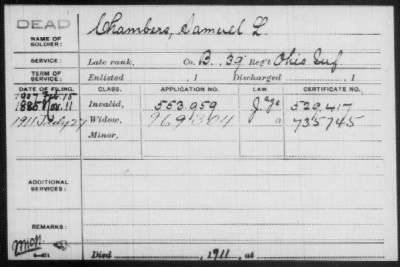 DEAD
NAME OF SOLDIER: Chambers, Samuel L.
SERVICE: Late rank, Co. B. 39 Reg't Ohio Inf.
TERM OF SERVICE: Enlisted , 1 Discharged , 1
DATE OF FILING. CLASS. APPLICATION NO. LAW. CERTIFICATE NO.
1907 Feb. 15
1885 Nov. 11 Invalid, 553.959 529.417
1911 July 27 Widow, 969304 735745
Minor,
ADDITIONAL SERVICES:
REMARKS:
Died , 1911, at